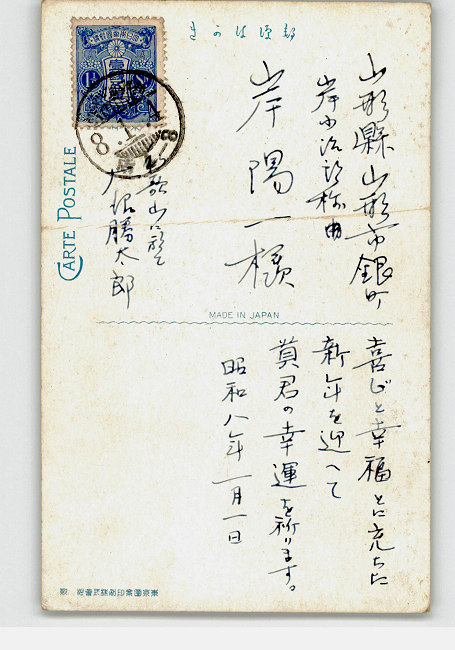 郵便はがき
山形縣山形市銀町
岸小治郎様
岸陽一様
勝太郎
喜びと幸福とに充ちた
新年を迎へて
貴君の幸運を祈ります。
昭和八年一月一日
CARTE POSTALE
MADE IN JAPAN